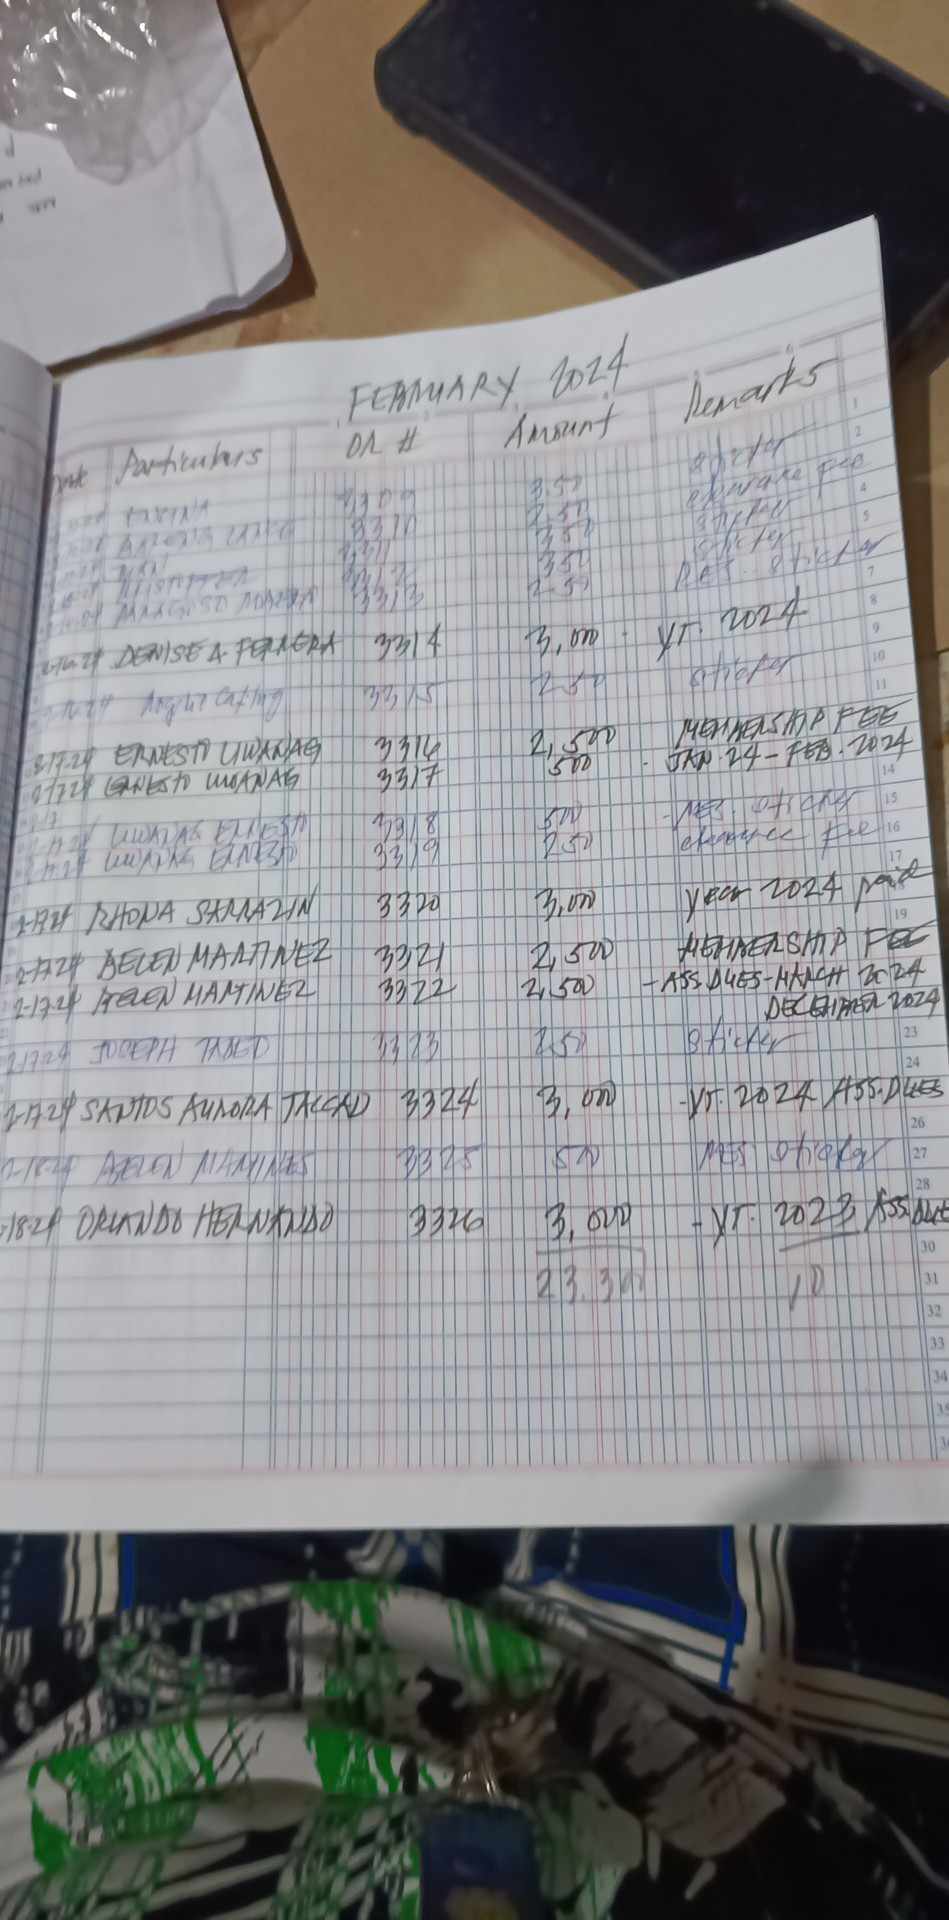 FEBRUARY 2024
Particulars OR # Amount Remarks
3309 350 sticker
3310 250 clearance Fee
3311 350 sticker
350 sticker
3313 250 RES. sticker
2-16-24 DENISE A. FERRERA 3314 3,000 yr. 2024
3315 250 sticker
2-17-24 ERNESTO UWANAG 3316 2,500 MEMBERSHIP FEE
2-17-24 ERNESTO UWANAG 3317 500 - JAN. 24 - FEB. 2024
2-17-24 UWANAG ERNESTO 3318 500 - RES. sticker
2-17-24 UWANAG ERNESTO 3319 250 clearance Fee
2-17-24 RHONA SARRAZIN 3320 3,000 year 2024 paid
2-17-24 BELEN MARTINEZ 3321 2,500 MEMBERSHIP FEE
2-17-24 BELEN MARTINEZ 3322 2,500 - ASS. DUES - MARCH 2024
DECEMBER 2024
2-17-24 JOSEPH 3323 250 sticker
2-17-24 SANTOS AURORA TACCAD 3324 3,000 - yr. 2024 ASS. DUES
2-18-24 BELEN MARTINES 3325 500 RES sticker
2-18-24 ORLANDO HERNANDO 3326 3,000 - yr. 2023 ASS. DUES
23,300 10